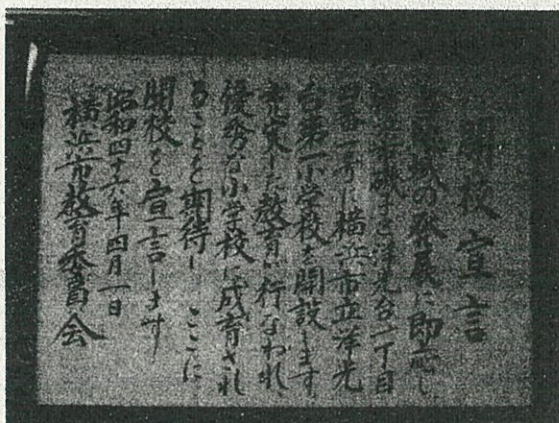 開校宣言
地域の発展に即応し
横浜市磯子区洋光台一丁目
四番一号に横浜市立洋光
台第一小学校を開設します
充実した教育が行なわれ、
優秀な小学校に成育され
ることを期待し ここに
開校を宣言します
昭和四十六年四月一日
横浜市教育委員会